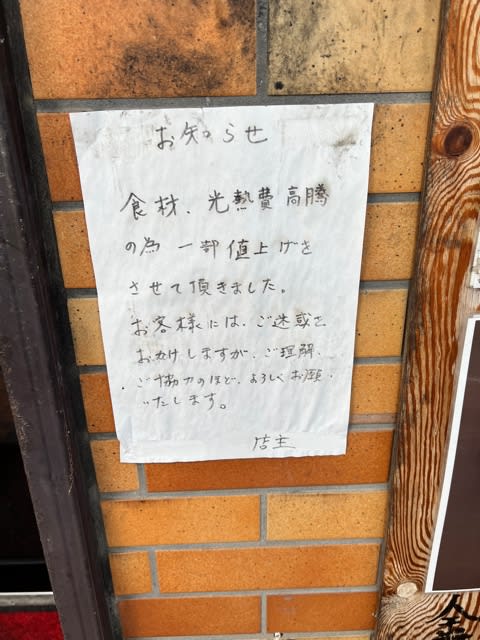 お知らせ
食材、光熱費高騰
の為 一部値上げを
させて頂きました。
お客様には、ご迷惑を
おかけしますが、ご理解、
ご協力のほど、よろしくお願
いたします。
店主